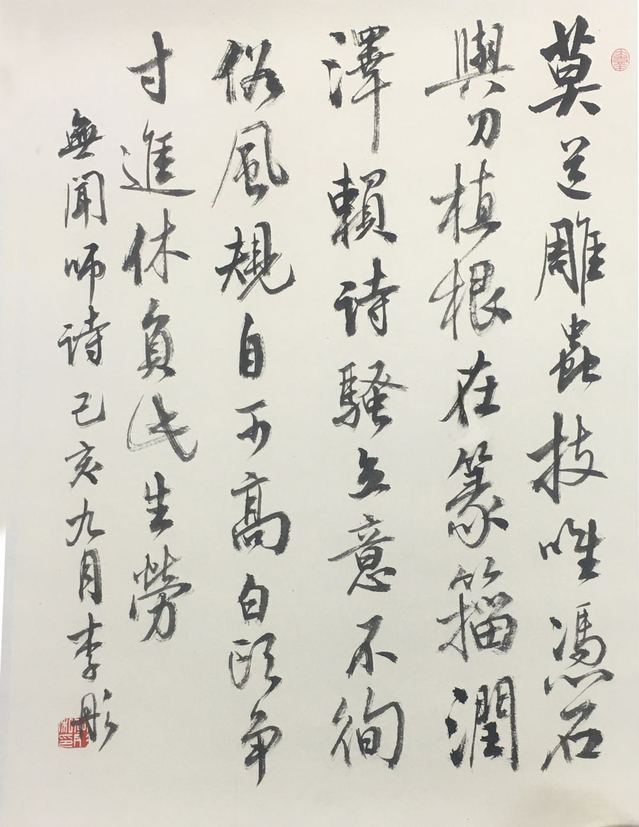 莫道雕蟲技唯憑石
與刀植根在篆籀潤
澤賴诗騷立意不徇
俗風規自可高白頭争
寸進休負此生勞
無聞师诗己亥九月李彤